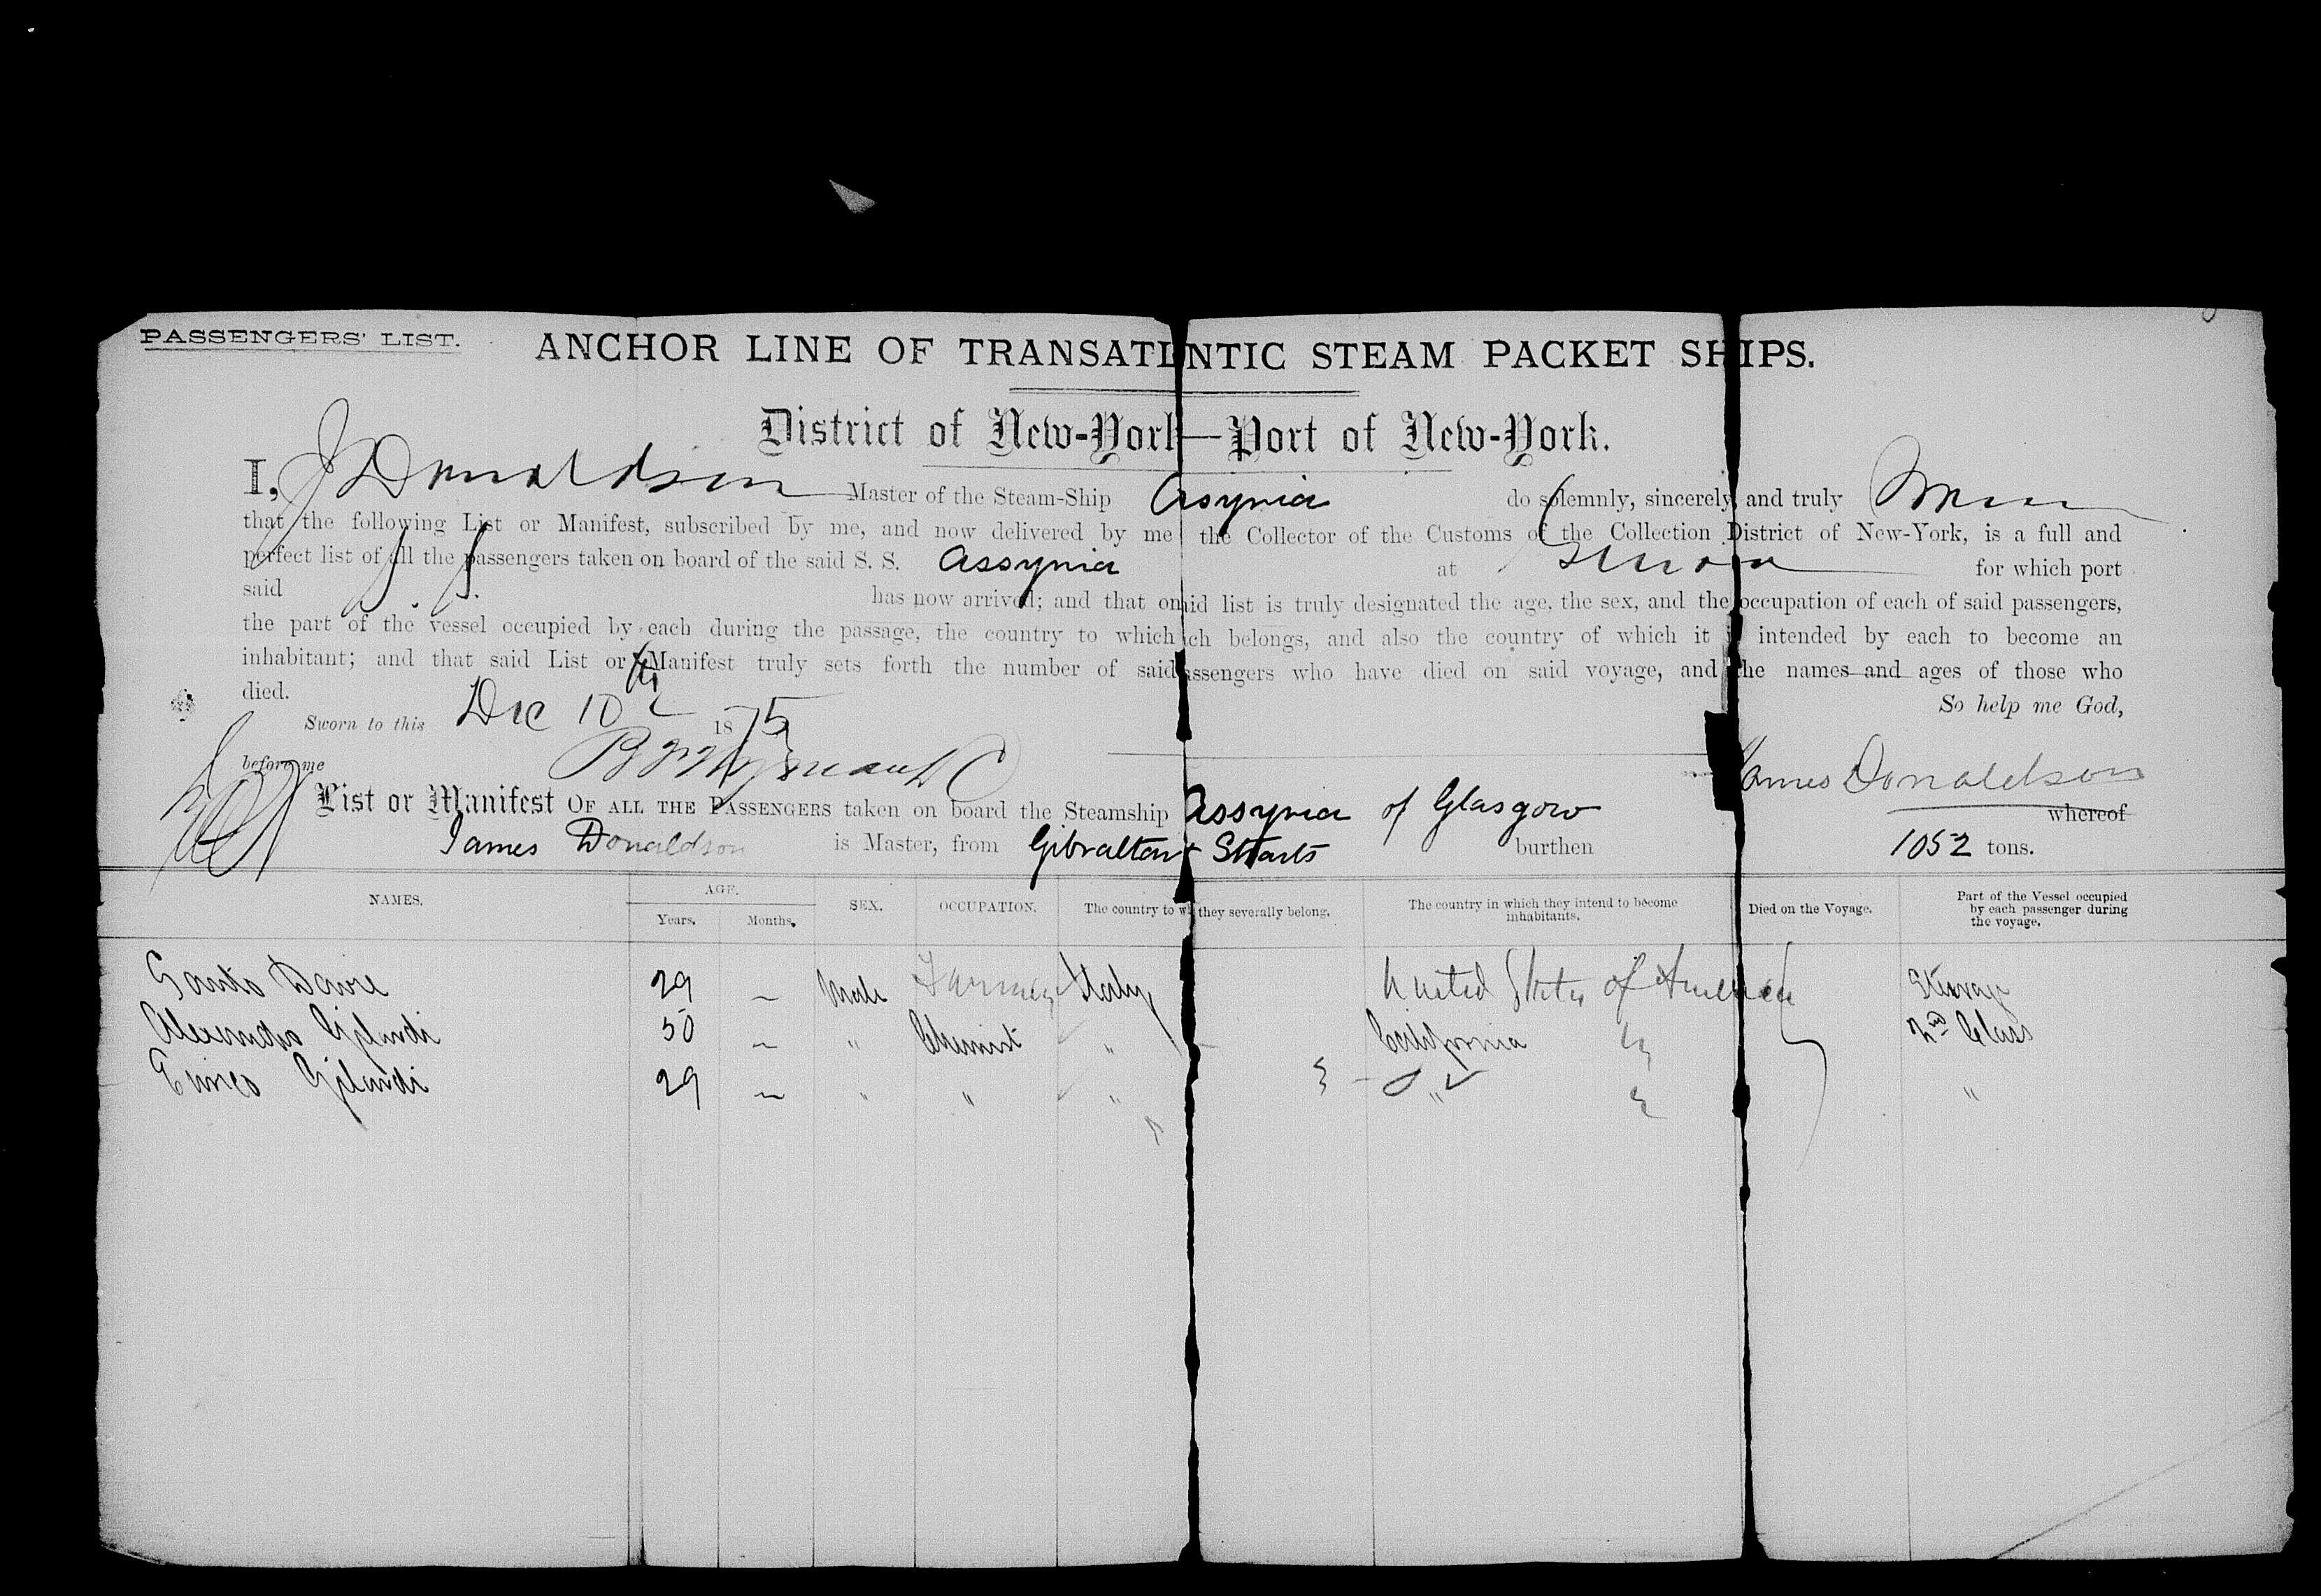 PASSENGERS' LIST.
ANCHOR LINE OF TRANSATLNTIC STEAM PACKET SHIPS.
District of New-York—Port of New-York.
I, J Donaldson Master of the Steam-Ship Assyria do solemnly, sincerely and truly
that the following List or Manifest, subscribed by me, and now delivered by me the Collector of the Customs of the Collection District of New-York, is a full and
perfect list of all the passengers taken on board of the said S. S. Assyria at Genoa for which port
said has now arrived; and that on aid list is truly designated the age, the sex, and the occupation of each of said passengers,
the part of the vessel occupied by each during the passage, the country to which ch belongs, and also the country of which it is intended by each to become an
inhabitant; and that said List or Manifest truly sets forth the number of said assengers who have died on said voyage, and the names and ages of those who
died.
So help me God,
Sworn to this Dec 10th 1875
before me
James Donaldson
List or Manifest OF ALL THE PASSENGERS taken on board the Steamship Assyria of Glasgow whereof
James Donaldson is Master, from Gibraltar Straits burthen 1052 tons.
NAMES. AGE. SEX. OCCUPATION. The country to wh they severally belong. The country in which they intend to become inhabitants. Died on the Voyage. Part of the Vessel occupied by each passenger during the voyage.
Years. Months.
Santo Davre 29 – Male Farmer Italy United States of America Steerage
Alexandro Gilardi 50 – " Chemist " California 2nd Class
Gilardi 29 – " " " " "